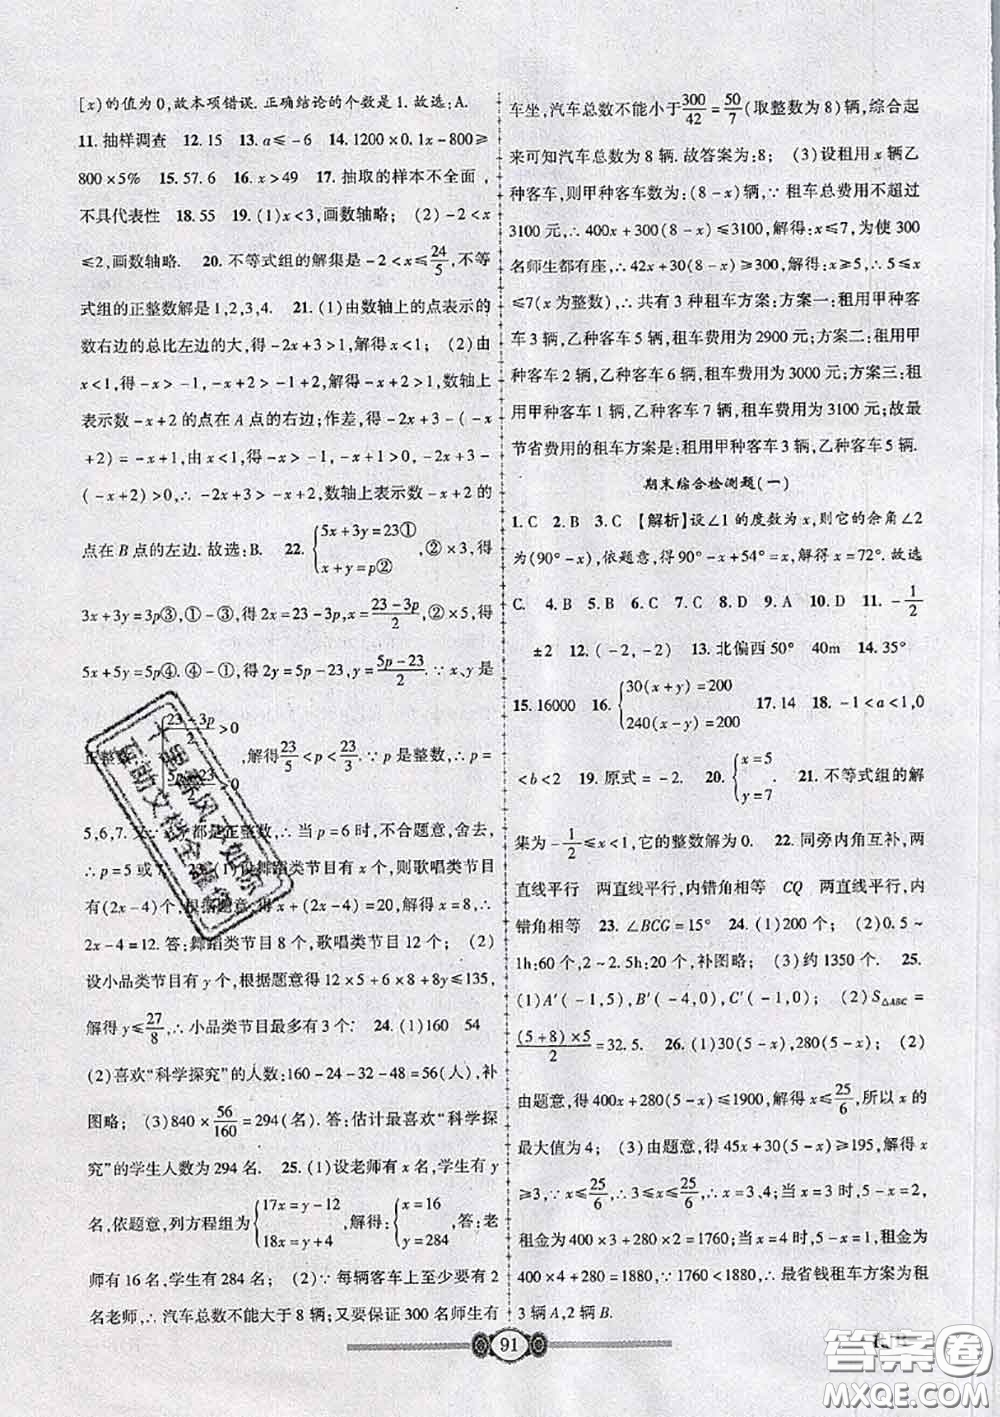 [x)的值为0,故本项错误.正确结论的个数是1.故选:A.
11.抽样调查 12.15 13.a≤-6 14.1200×0.1x-800≥
800×5% 15.57.6 16.x>49 17.抽取的样本不全面,
不具代表性 18.55 19.(1)x<3,画数轴略; (2)-2<x
≤2,画数轴略. 20.不等式组的解集是-2<x≤24/5,不等
式组的正整数解是1,2,3,4. 21.(1)由数轴上的点表示的
数右边的总比左边的大,得-2x+3>1,解得x<1; (2)由
x<1,得-x>-1.-x+2>-1+2,解得-x+2>1,数轴上
表示数-x+2的点在A点的右边;作差,得-2x+3-(-x
+2)=-x+1,由x<1,得-x>-1,-x+1>0,-2x+3-
(-x+2)>0,∴-2x+3>-x+2,数轴上表示数-x+2的
点在B点的左边.故选:B. 22.{5x+3y=23① x+y=p②,②×3,得
3x+3y=3p③,①-③,得2x=23-3p,x=23-3p/2,②×5,得
5x+5y=5p④.④-①,得2y=5p-23,y=5p-23/2.∵x、y是
正整数 23-3p/2>0 5p-23/2>0,解得23/5<p<23/3.∵p是整数,∴p=
5,6,7.又∵x、y都是正整数,∴当p=6时,不合题意,舍去,
∴p=5或7. 23.(1)设舞蹈类节目有x个,则歌唱类节目
有(2x-4)个,根据题意,得x+(2x-4)=20,解得x=8,∴
2x-4=12.答:舞蹈类节目8个,歌唱类节目12个; (2)
设小品类节目有y个,根据题意得12×5+8×6+8y≤135,
解得y≤27/8,∴小品类节目最多有3个. 24.(1)160 54
(2)喜欢“科学探究”的人数:160-24-32-48=56(人),补
图略; (3)840×56/160=294(名).答:估计最喜欢“科学探
究”的学生人数为294名. 25.(1)设老师有x名,学生有y
名,依题意,列方程组为{17x=y-12 18x=y+4,解得:{x=16 y=284,答:老
师有16名,学生有284名; (2)∵每辆客车上至少要有2
名老师,∴汽车总数不能大于8辆;又要保证300名师生有
车坐,汽车总数不能小于300/42=50/7(取整数为8)辆,综合起
来可知汽车总数为8辆.故答案为:8; (3)设租用x辆乙
种客车,则甲种客车数为:(8-x)辆,∵租车总费用不超过
3100元,∴400x+300(8-x)≤3100,解得:x≤7,为使300
名师生都有座,∴42x+30(8-x)≥300,解得:x≥5,∴5≤x
≤7(x为整数),∴共有3种租车方案:方案一:租用甲种客
车3辆,乙种客车5辆,租车费用为2900元;方案二:租用甲种
客车2辆,乙种客车6辆,租车费用为3000元;方案三:租
用甲种客车1辆,乙种客车7辆,租车费用为3100元;故最
节省费用的租车方案是:租用甲种客车3辆,乙种客车5辆.
期末综合检测题(一)
1.C 2.B 3.C【解析】设∠1的度数为x,则它的余角∠2
为(90°-x),依题意,得90°-x+54°=x,解得x=72°.故选
C. 4.B 5.B 6.B 7.B 8.D 9.A 10.D 11.-1/2
±2 12.(-2,-2) 13.北偏西50° 40m 14.35°
15.16000 16.{30(x+y)=200 240(x-y)=200 17.14 18.-1<a<1,0
<b<2 19.原式=-2. 20.{x=5 y=7. 21.不等式组的解
集为-1/2≤x<1,它的整数解为0. 22.同旁内角互补,两
直线平行 两直线平行,内错角相等 CQ 两直线平行,内
错角相等 23.∠BCG=15° 24.(1)200个; (2)0.5~
1h:60个,2~2.5h:20个,补图略; (3)约1350个. 25.
(1)A′(-1,5),B′(-4,0),C′(-1,0); (2)S△ABC=
(5+8)×5/2=32.5. 26.(1)30(5-x),280(5-x); (2)
由题意,得400x+280(5-x)≤1900,解得x≤25/6,所以x的
最大值为4; (3)由题意,得45x+30(5-x)≥195,解得x
≥3,∵x≤25/6,∴3≤x≤25/6,∴x=3、4;当x=3时,5-x=2,
租金为400×3+280×2=1760;当x=4时,5-x=1,租金为
400×4+280=1880,∵1760<1880,∴最省钱租车方案为租
3辆A,2辆B.
91
答案圈
MXQE.COM